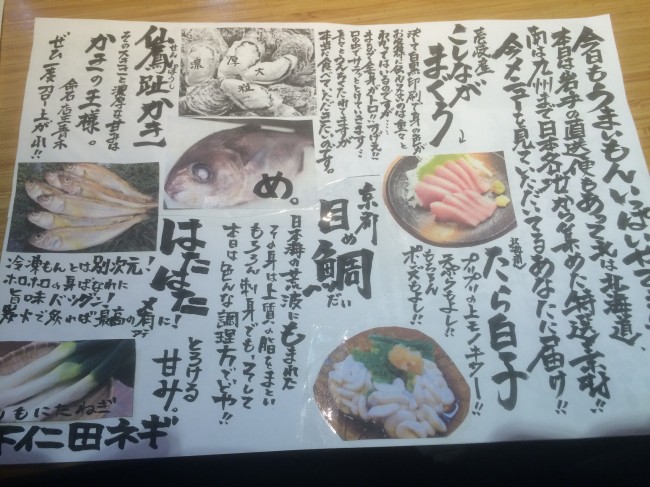 今日もうまいもんいっぱいやで!
本日は岩手の直送便もあって北は北海道、
南は九州まで日本各地から集めた特送素材!!
今メニューを見ていただいてるあなたに届け!!
北海道
たら白子
プリップリの上モノキター!!
天ぷらもよし!!
もちろん
ポン酢もよし!!
壱岐産
こしなが
まぐろ
決して白黒印刷で身の色が
口の中でサラッととけていきます…
本当に食べていただきたいのです。
京都
目鯛
めだい
め。
日本海の荒波にもまれた
その身は上質の脂をまとい
もちろん刺身でも、そして
本日は色んな調理方でどいや!!
濃
厚
大
粒
仙鳳趾かき
せんぽうし
その大きさと濃厚な甘みは
かきの王様。
命名店主青木
ぜひ一度召し上がれ!!
はたはた
冷凍もんとは別次元!
ホロホロの身ばなれに
旨味バツグン!
炭火で炙れば最高の肴に!
アテ
とろける
甘み。
しもにたねぎ
下仁田ネギ